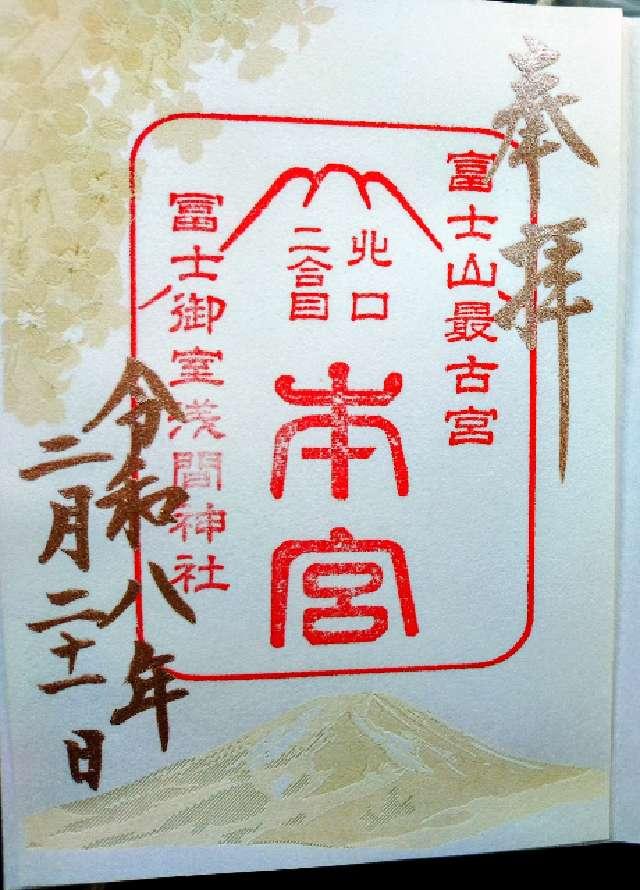 奉拝
富士山最古宮
北口
二合目
本宮
富士御室浅間神社
令和八年
二月二十一日